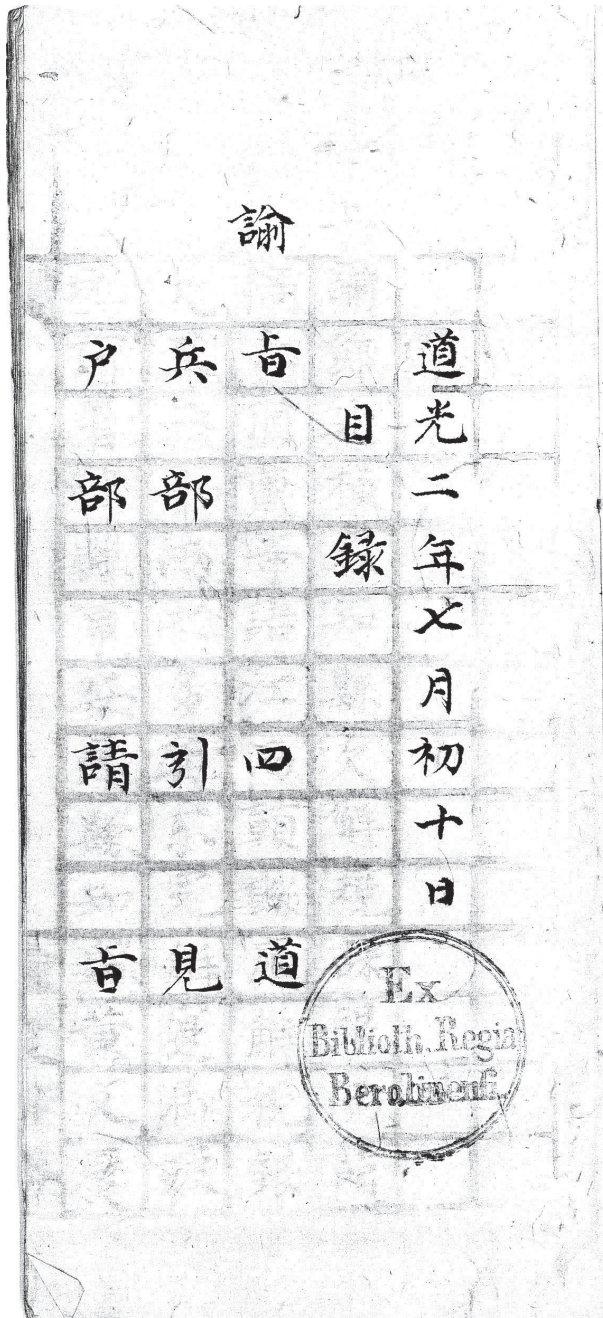 道光二年七月初十日
目錄
諭旨 四道
兵部 引見
户部 請旨
Ex
Biblioth. Regia
Berolinensi.